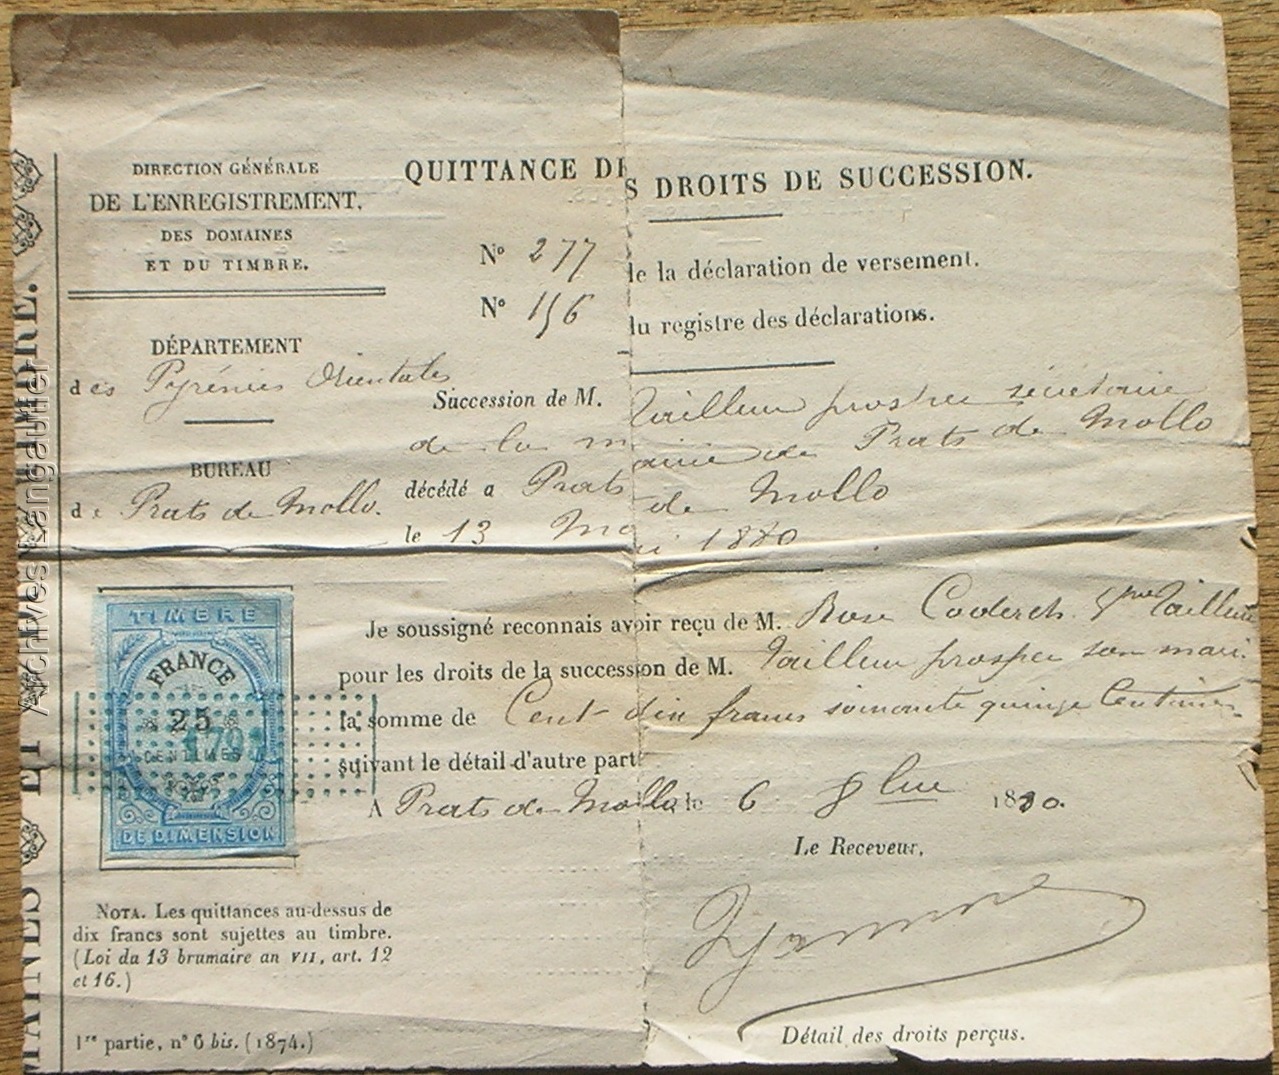 DIRECTION GÉNÉRALE
DE L'ENREGISTREMENT,
DES DOMAINES
ET DU TIMBRE.
DÉPARTEMENT
des Pyrénées Orientales
BUREAU
de Prats de Mollo.
QUITTANCE DES DROITS DE SUCCESSION.
N° 277 de la déclaration de versement.
N° 156 du registre des déclarations.
Succession de M. Tailleur prosper sécrétaire
de la mairie de Prats de Mollo
décédé a Prats de Mollo
le 13 Mai 1880
Je soussigné reconnais avoir reçu de M. Rose Coderch Tailleur
pour les droits de la succession de M. Tailleur prosper son mari.
la somme de Cent dix francs soixante quinze Centimes
suivant le détail d'autre part.
A Prats de Mollo, le 6 8bre 1880.
Le Receveur,
TIMBRE
FRANCE
25
CENTIMES
DE DIMENSION
NOTA. Les quittances au-dessus de
dix francs sont sujettes au timbre.
(Loi du 13 brumaire an VII, art. 12
et 16.)
1re partie, n° 6 bis. (1874.)
Détail des droits perçus.
Archives Langautier